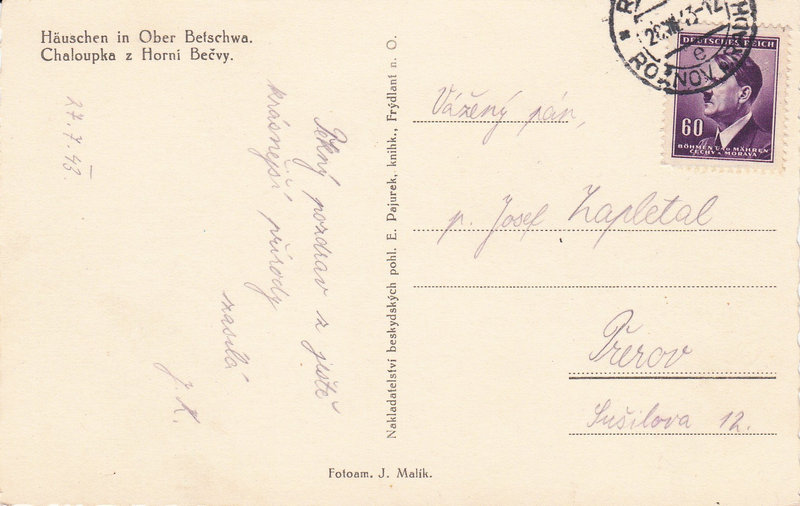 Häuschen in Ober Betschwa.
Chaloupka z Horní Bečvy.
27.7.43.
Pěkný pozdrav z ještě
krásnější přírody
zasílá
J. K.
Nakladatelství beskydských pohl. E. Pajurek, knihk., Frýdlant n. O.
Fotoam. J. Malík.
Vážený pán,
p. Josef Zapletal
Přerov
Sušilova 12.
DEUTSCHES REICH
60
BÖHMEN UND MÄHREN
ČECHY A MORAVA
ROŽNOV
e